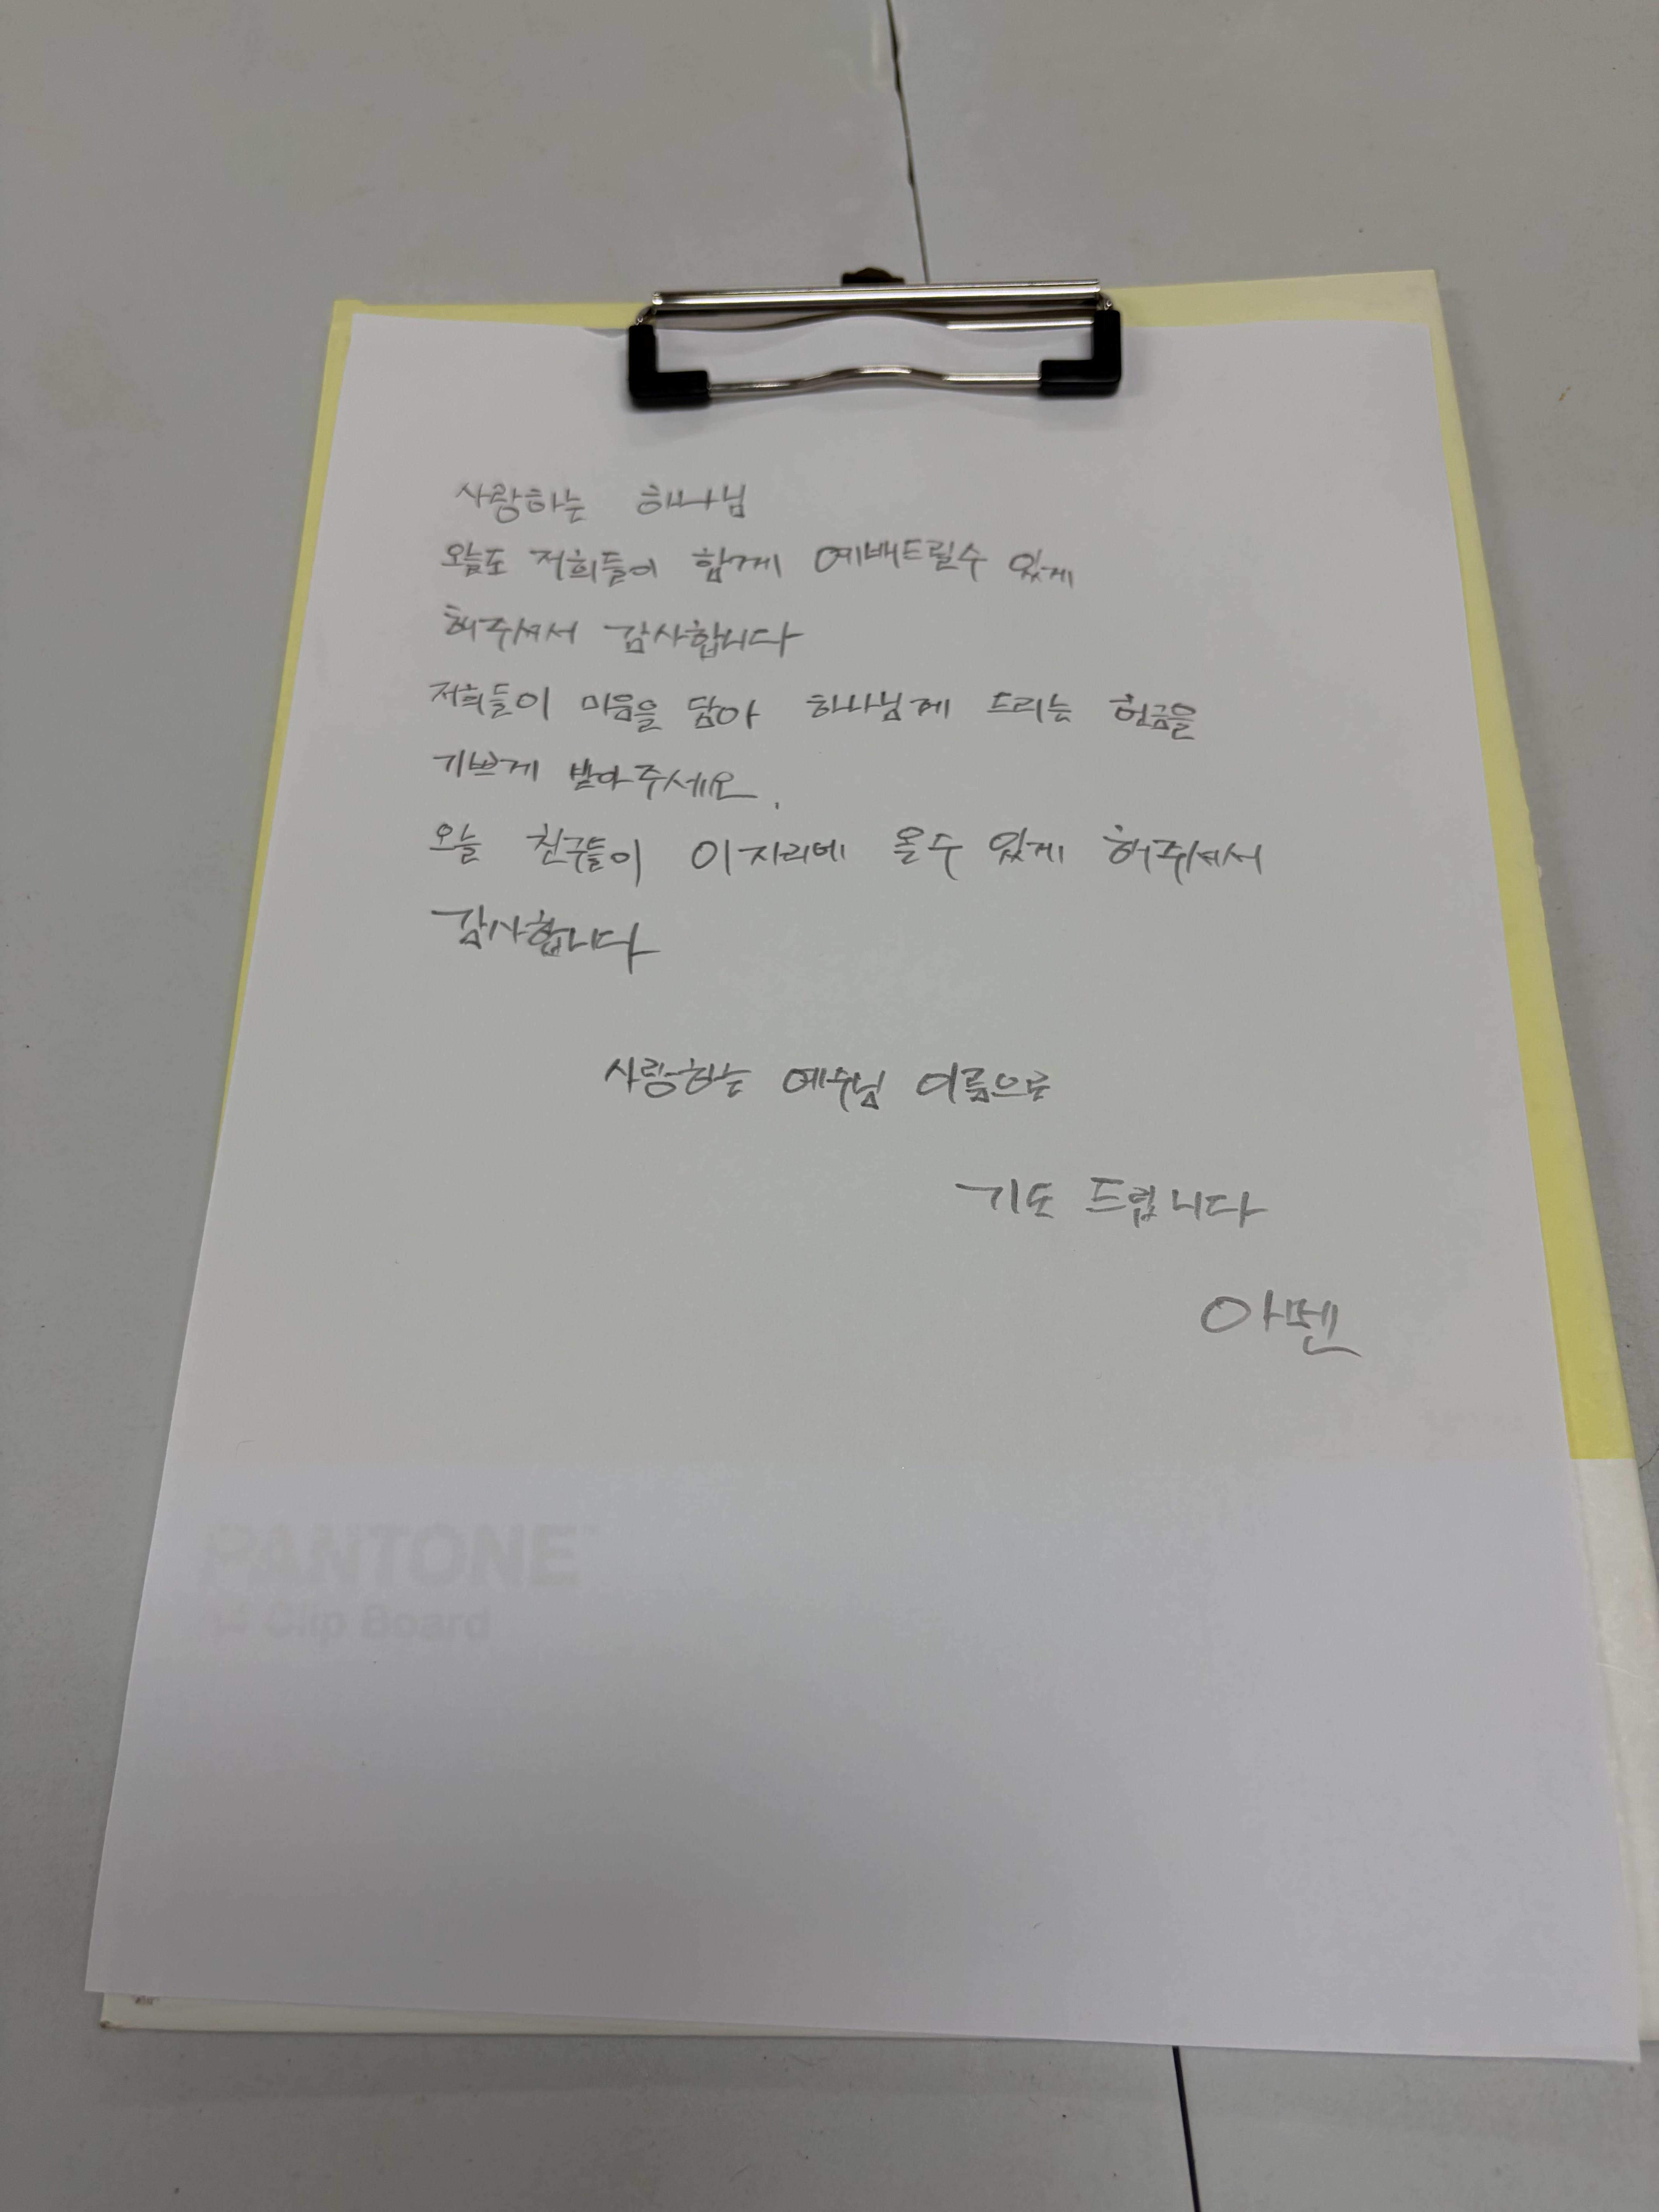 사랑하는 하나님
오늘도 저희들이 함께 예배드릴수 있게
해주셔서 감사합니다
저희들이 마음을 담아 하나님께 드리는 헌금을
기쁘게 받아주세요.
오늘 친구들이 이자리에 올수 있게 해주셔서
감사합니다
사랑하는 예수님 이름으로
기도 드립니다
아멘
PANTONE™
Clip Board